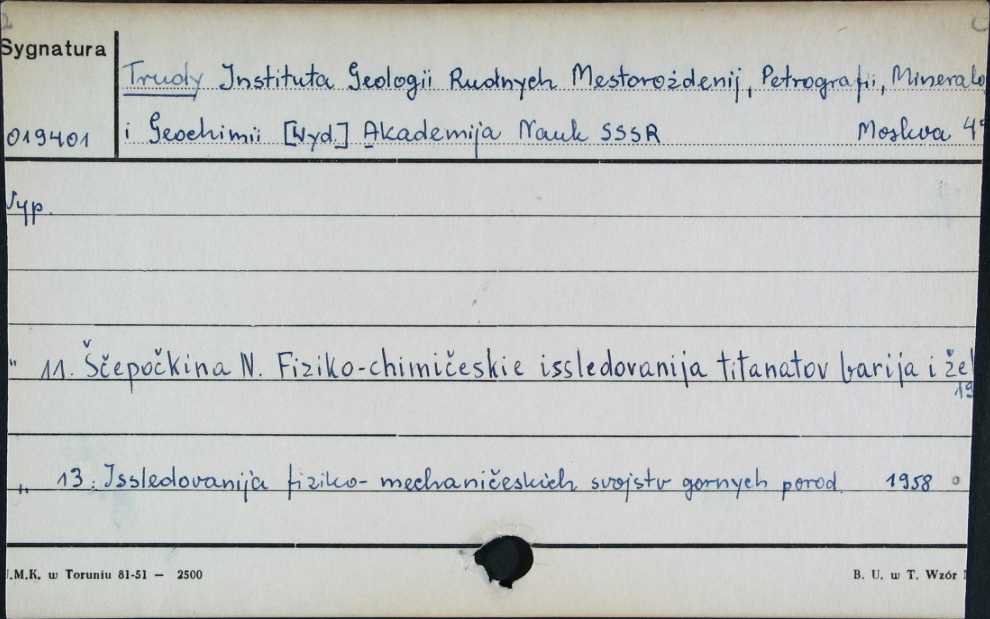 Sygnatura
Trudy Instituta Geologii Rudnych Mestorożdenij, Petrografii, Mineralo
019401
i Geochimii [Wyd.] Akademija Nauk SSSR Moskva
Vyp.
" 11. Ščepočkina N. Fiziko-chimičeskie issledovanija titanatov barija i žel
19
" 13. Issledovanija fiziko-mechaničeskich svojstv gornych porod. 1958
.M.K. w Toruniu 81-51 — 2500
B. U. w T. Wzór